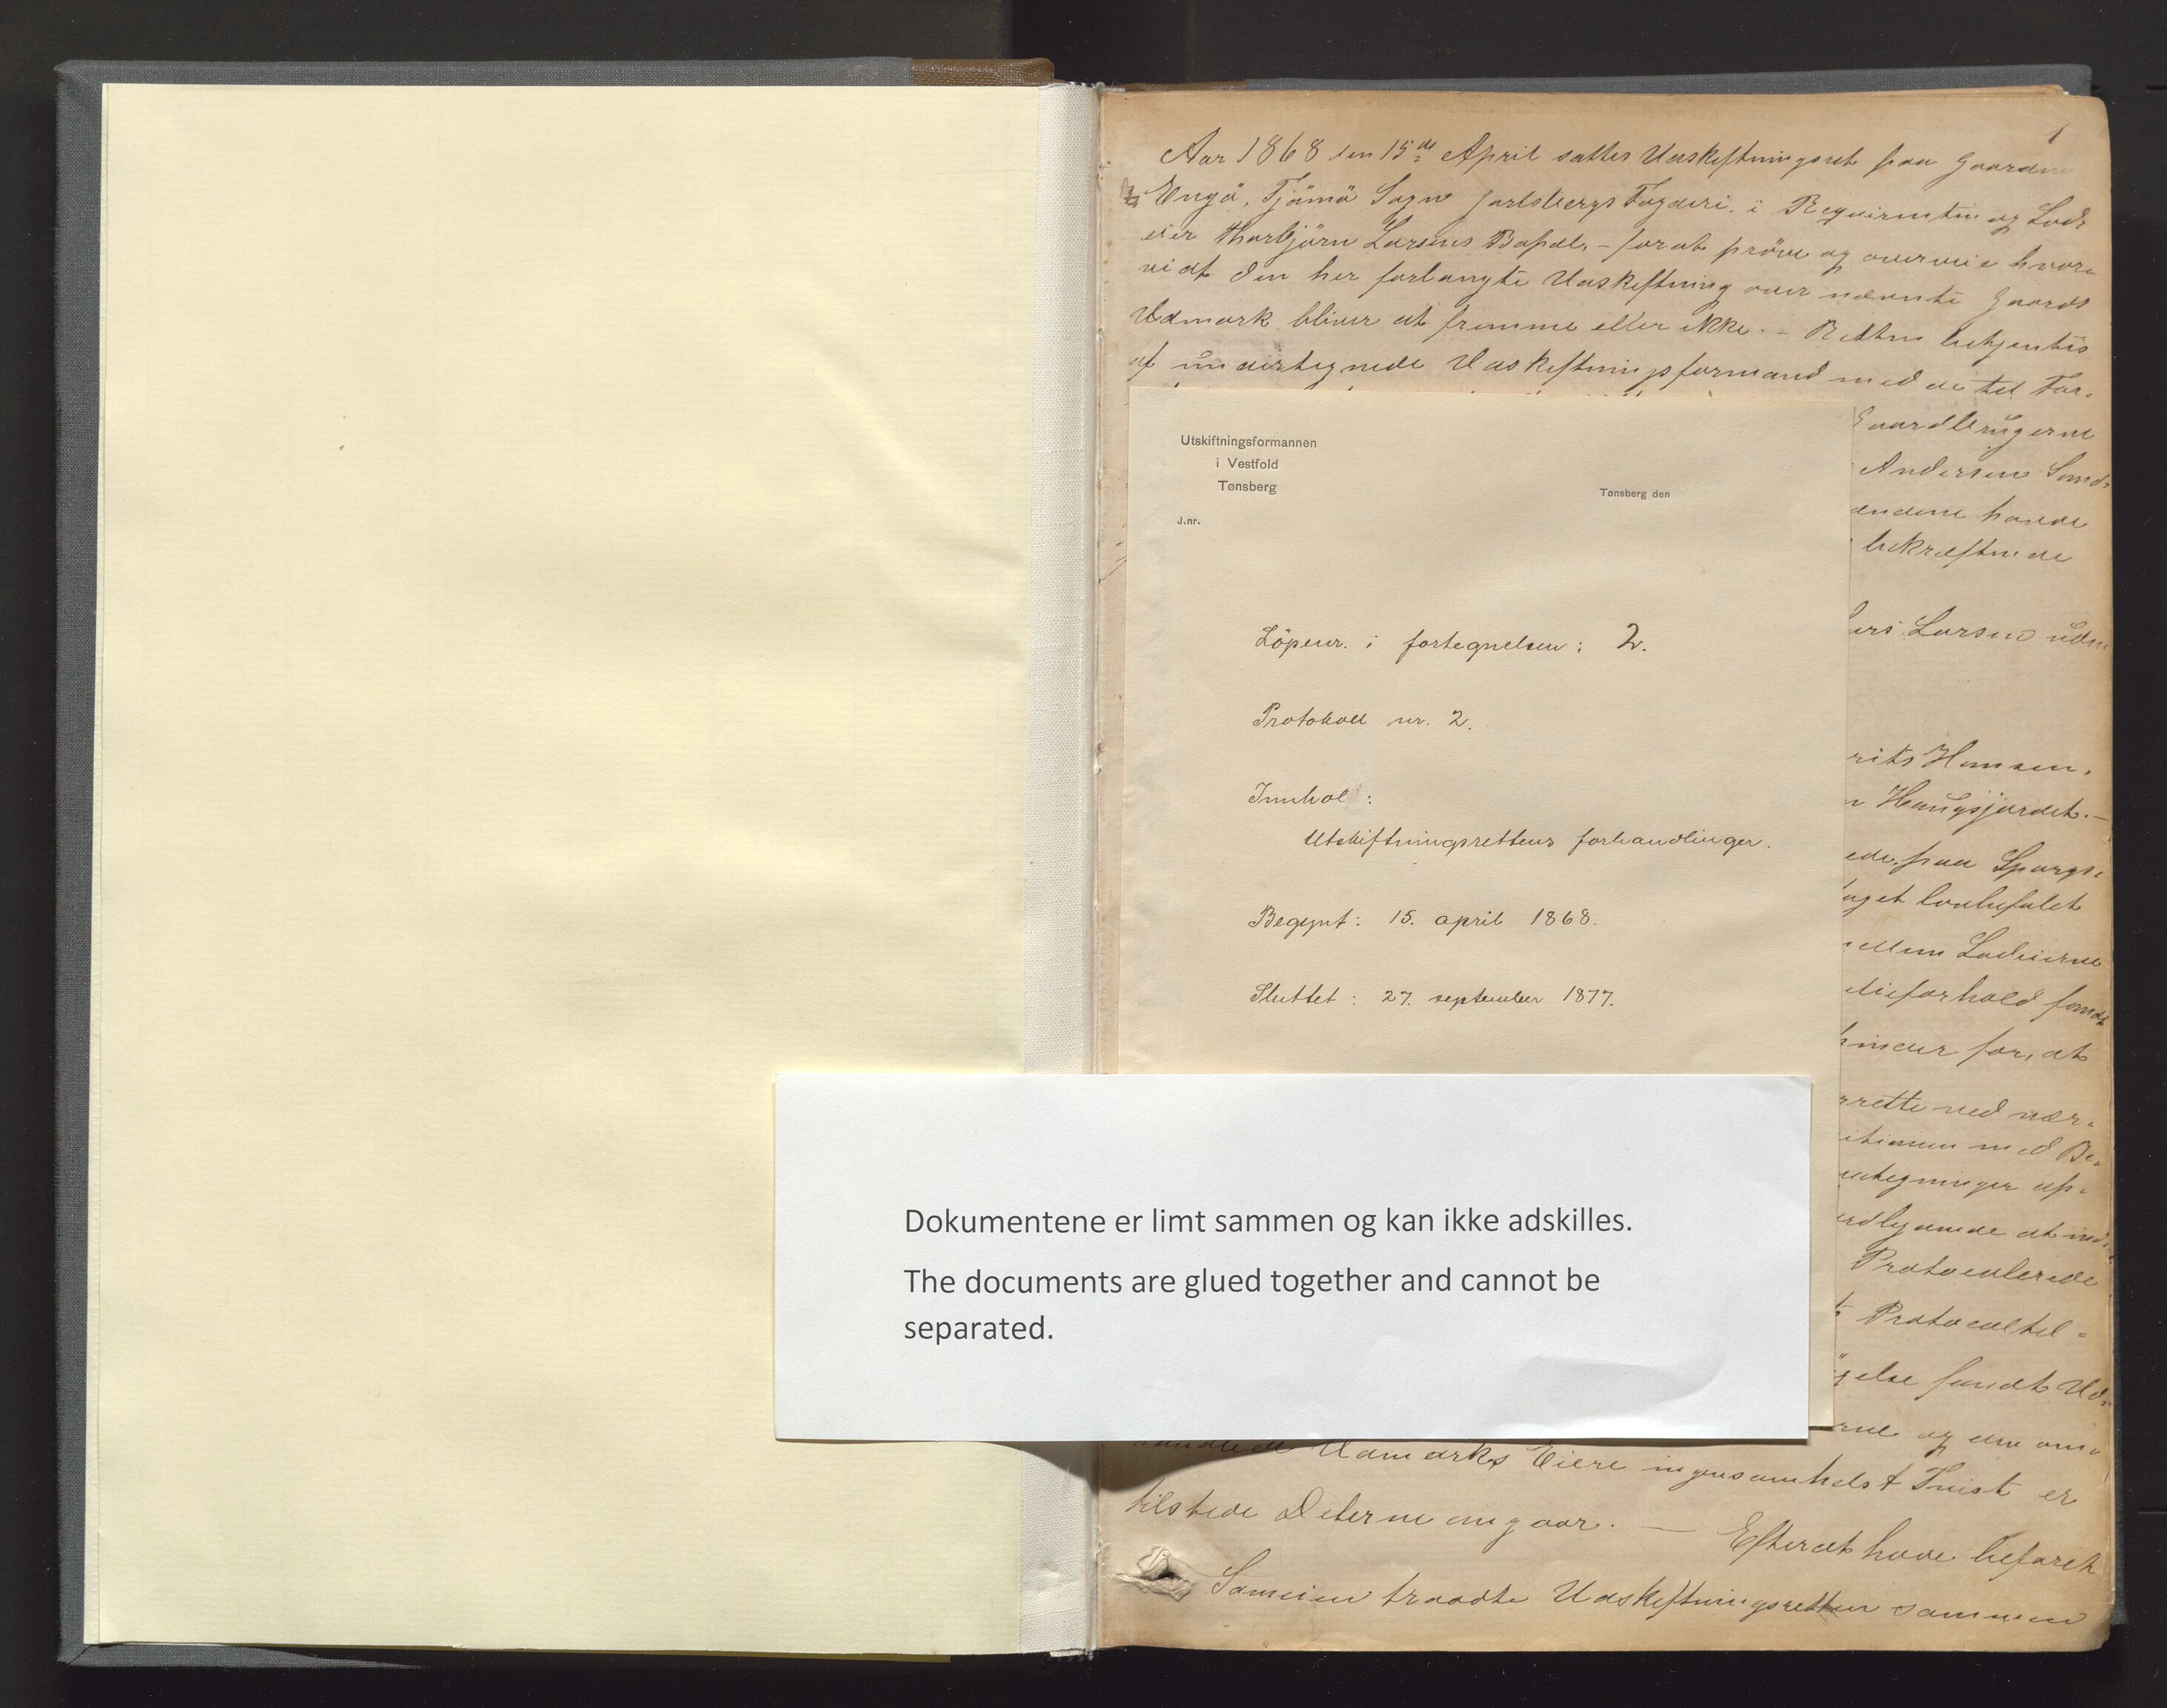 1
Aar 1868 den 15de April sattes Udskiftningsret paa Gaarden
Engö, Tjömö Sogn Jarlsbergs Fogderi, i Requirenten og Lods
eier Thorbjörn Larsens Bopæl, - forat pröve og overveie hvor-
vidt den her forlangte Udskiftning over nævnte Gaards
Udmark bliver at fremme eller ikke. - Retten betjentes
af undertegnede Udskiftningsformand med de til For-
Gaardbrugerne
Andersen
ændene havde
bekræftende
Lars Larsen
rits Hansen,
n Haugsjordet. -
ede paa Spørgs-
taget lovbefalet
mellem Lodeierne
dieforhold fandt
hinder for, at
rrette ved nær-
itionen med Be-
utegninger op-
ydende at ind-
Protocolerede
t Protocoltil-
gelse fandt Ud-
rne og den om-
handlede Udmarks Eiere ingensomhelst Tvist er
tilstede Deterne angaar. — Efterat have befaret
Sameien traadte Udskiftningsretten sammen
Utskiftningsformannen
i Vestfold
Tønsberg
Tønsberg den
J.nr.
Löpenr. i fortegnelsen: 2.
Protokoll nr. 2.
Innhol :
Utskiftningsrettens forhandlinger.
Begynt: 15. april 1868.
Sluttet: 27. september 1877.
Dokumentene er limt sammen og kan ikke adskilles.
The documents are glued together and cannot be
separated.